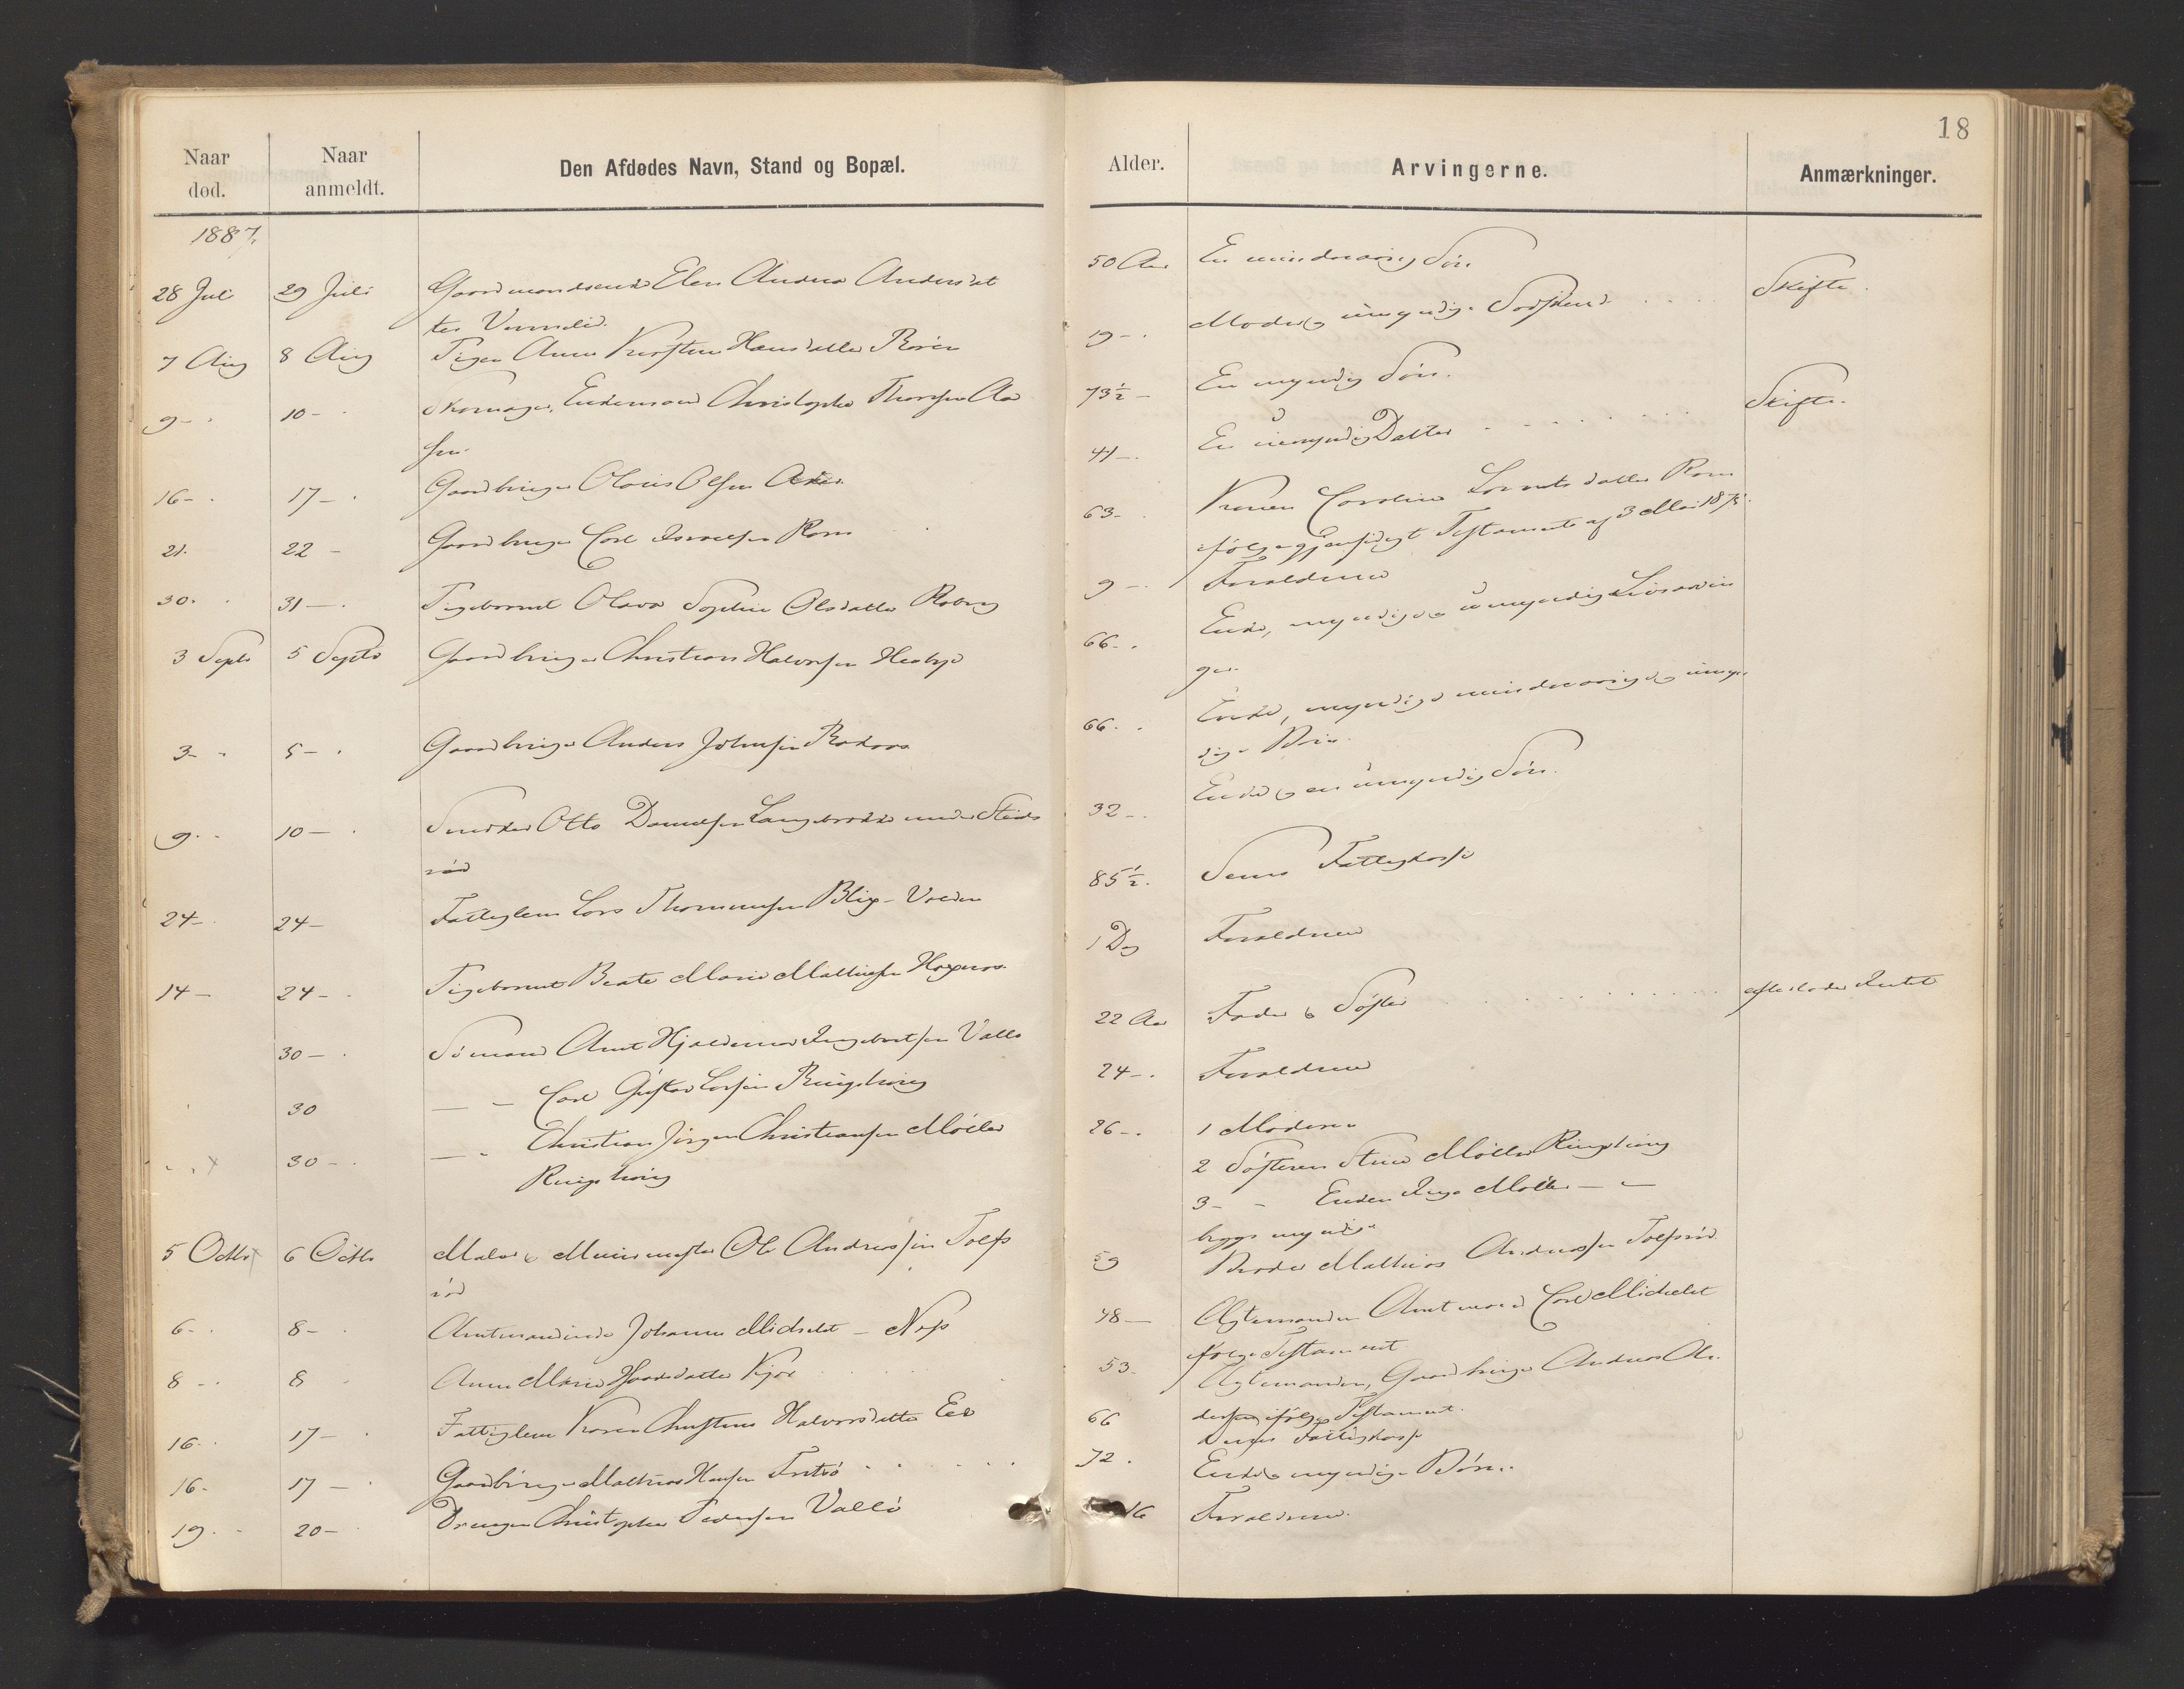 18
Naar død.
Naar anmeldt.
Den Afdødes Navn, Stand og Bopæl.
Alder.
Arvingerne.
Anmærkninger.
1887,
28 Juli 29 Juli Gaardmandsenke Andrea Andersdat
ter
50 Aar En mindreaarig Søn
Skifte.
7 Aug 8 Aug Pigen Anne Hansdatter
19 - Moder og umyndige Sødskend
9 - 10 - Skomager, Enkemand Christopher Thorsen Aa
sen.
73½ - En myndig Søn.
16 - 17 - Gaardbruger Olaus Olsen
41 - En umyndig Datter
Skifte.
21. 22 - Gaardbruger Carl Rom
63 - Konen Caroline Lorentsdatter Rom
ifølge gjensidigt Testamente af 3 Mai 187
30. 31 - Pigebarnet Olava Sophie Olsdatter Roberg
9 - Forældrene
3 Septb 5 Septb Gaardbruger Christian Halvorsen Heaby
66 - Enke, myndige og umyndige Livsarvin
ger.
3 - 5 - Gaardbruger Anders Johnsen
66 - Enke, myndige mindreaarige og umyn
dige Børn.
9 - 10 - Snedker Otto Danielsen Langebrække under
rød
32 - Enke og en umyndig Søn.
24 - 24 - Fattiglem Lars Thommesen Blix - Volden
85½ - Sems Fattigkasse
14 - 24 - Pigebarnet Beate Marie Mathisen Hognes
1 Dag Forældrene
30 - Sømand Arnt Hjalmar Ingebretsen Vallø
22 Aar Fader & Søster
efterlader Intet
30 - - Carl Gustav Larsen Ringshaug
24 - Forældrene
30 - - - Christian Jørgen Christiansen Møller
Ringshaug
26 - 1 Moderen
2 Søsteren Stine Møller Ringshaug
3 - - Enken Inga Møller - -
begge myndige
5 Octbr 6 Octbr Maler & Muurmester Ole Andreassen Tolfs
rød
59 Broder Mathias Andreassen Tolfsrød
6 - 8 - Amtmandinde Johanne Michelet - Næs
48 - Ægtemanden Amtmand Carl Michelet
ifølge Testament
8 - 8 - Anne Marie datter Kjær
53 - Ægtemanden, Gaardbruger Andreas An
dersen ifølge Testament.
16 - 17 - Fattiglem Karen Christine Halvorsdatter Eed
66 Sems Fattigkasse
16 - 17 - Gaardbruger Mathias Hansen
72 - Enke & myndige Børn.
19 - 20 - Drengen Christopher Pedersen Vallø
16 Forældrene.